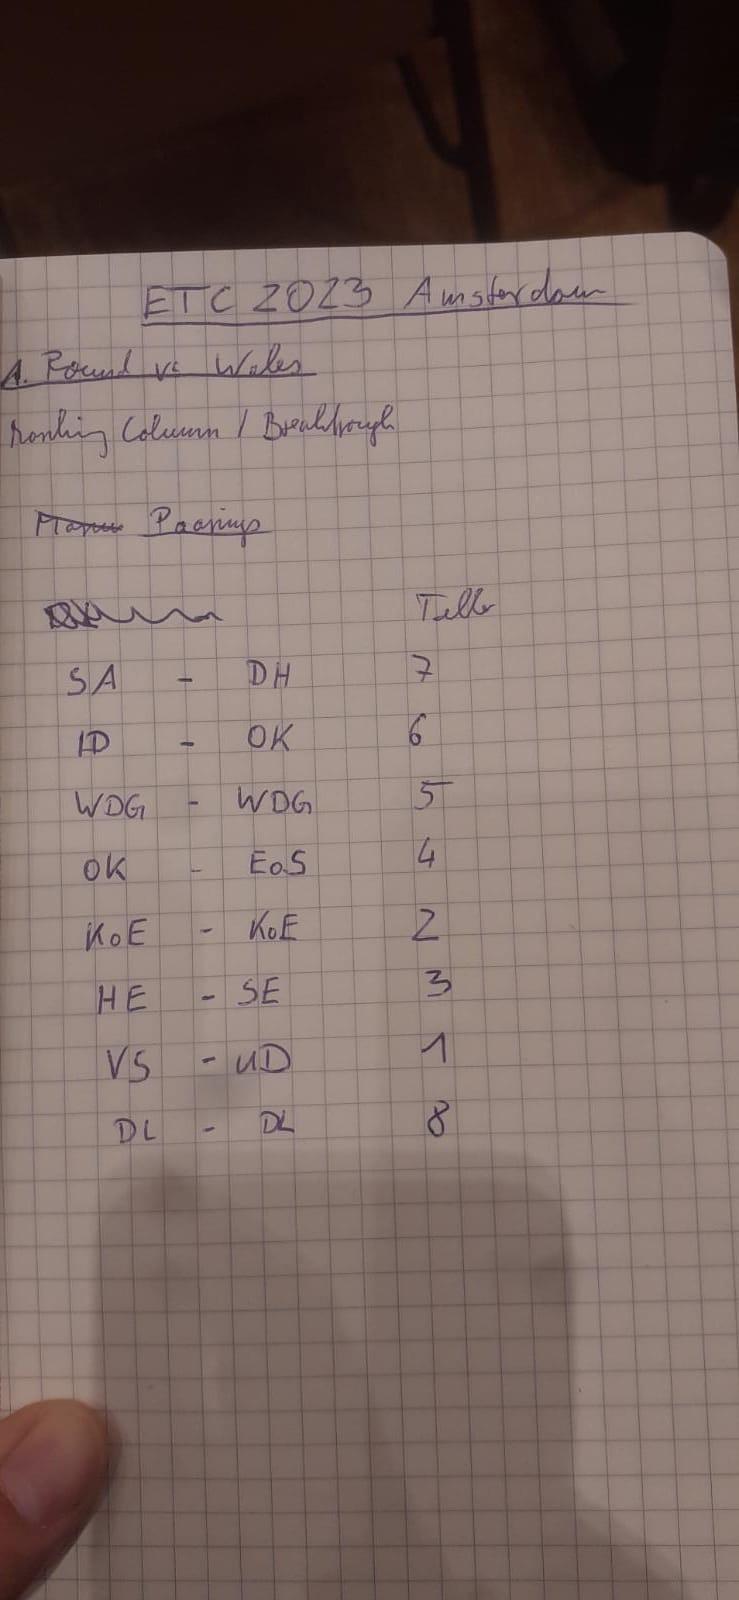 ETC 2023 Amsterdam
1. Round vs Wales
Marching Column / Breakthrough
Paarings
SA - DH 7
ID - OK 6
WDG - WDG 5
OK - EoS 4
KoE - KoE 2
HE - SE 3
VS - UD 1
DL - DL 8